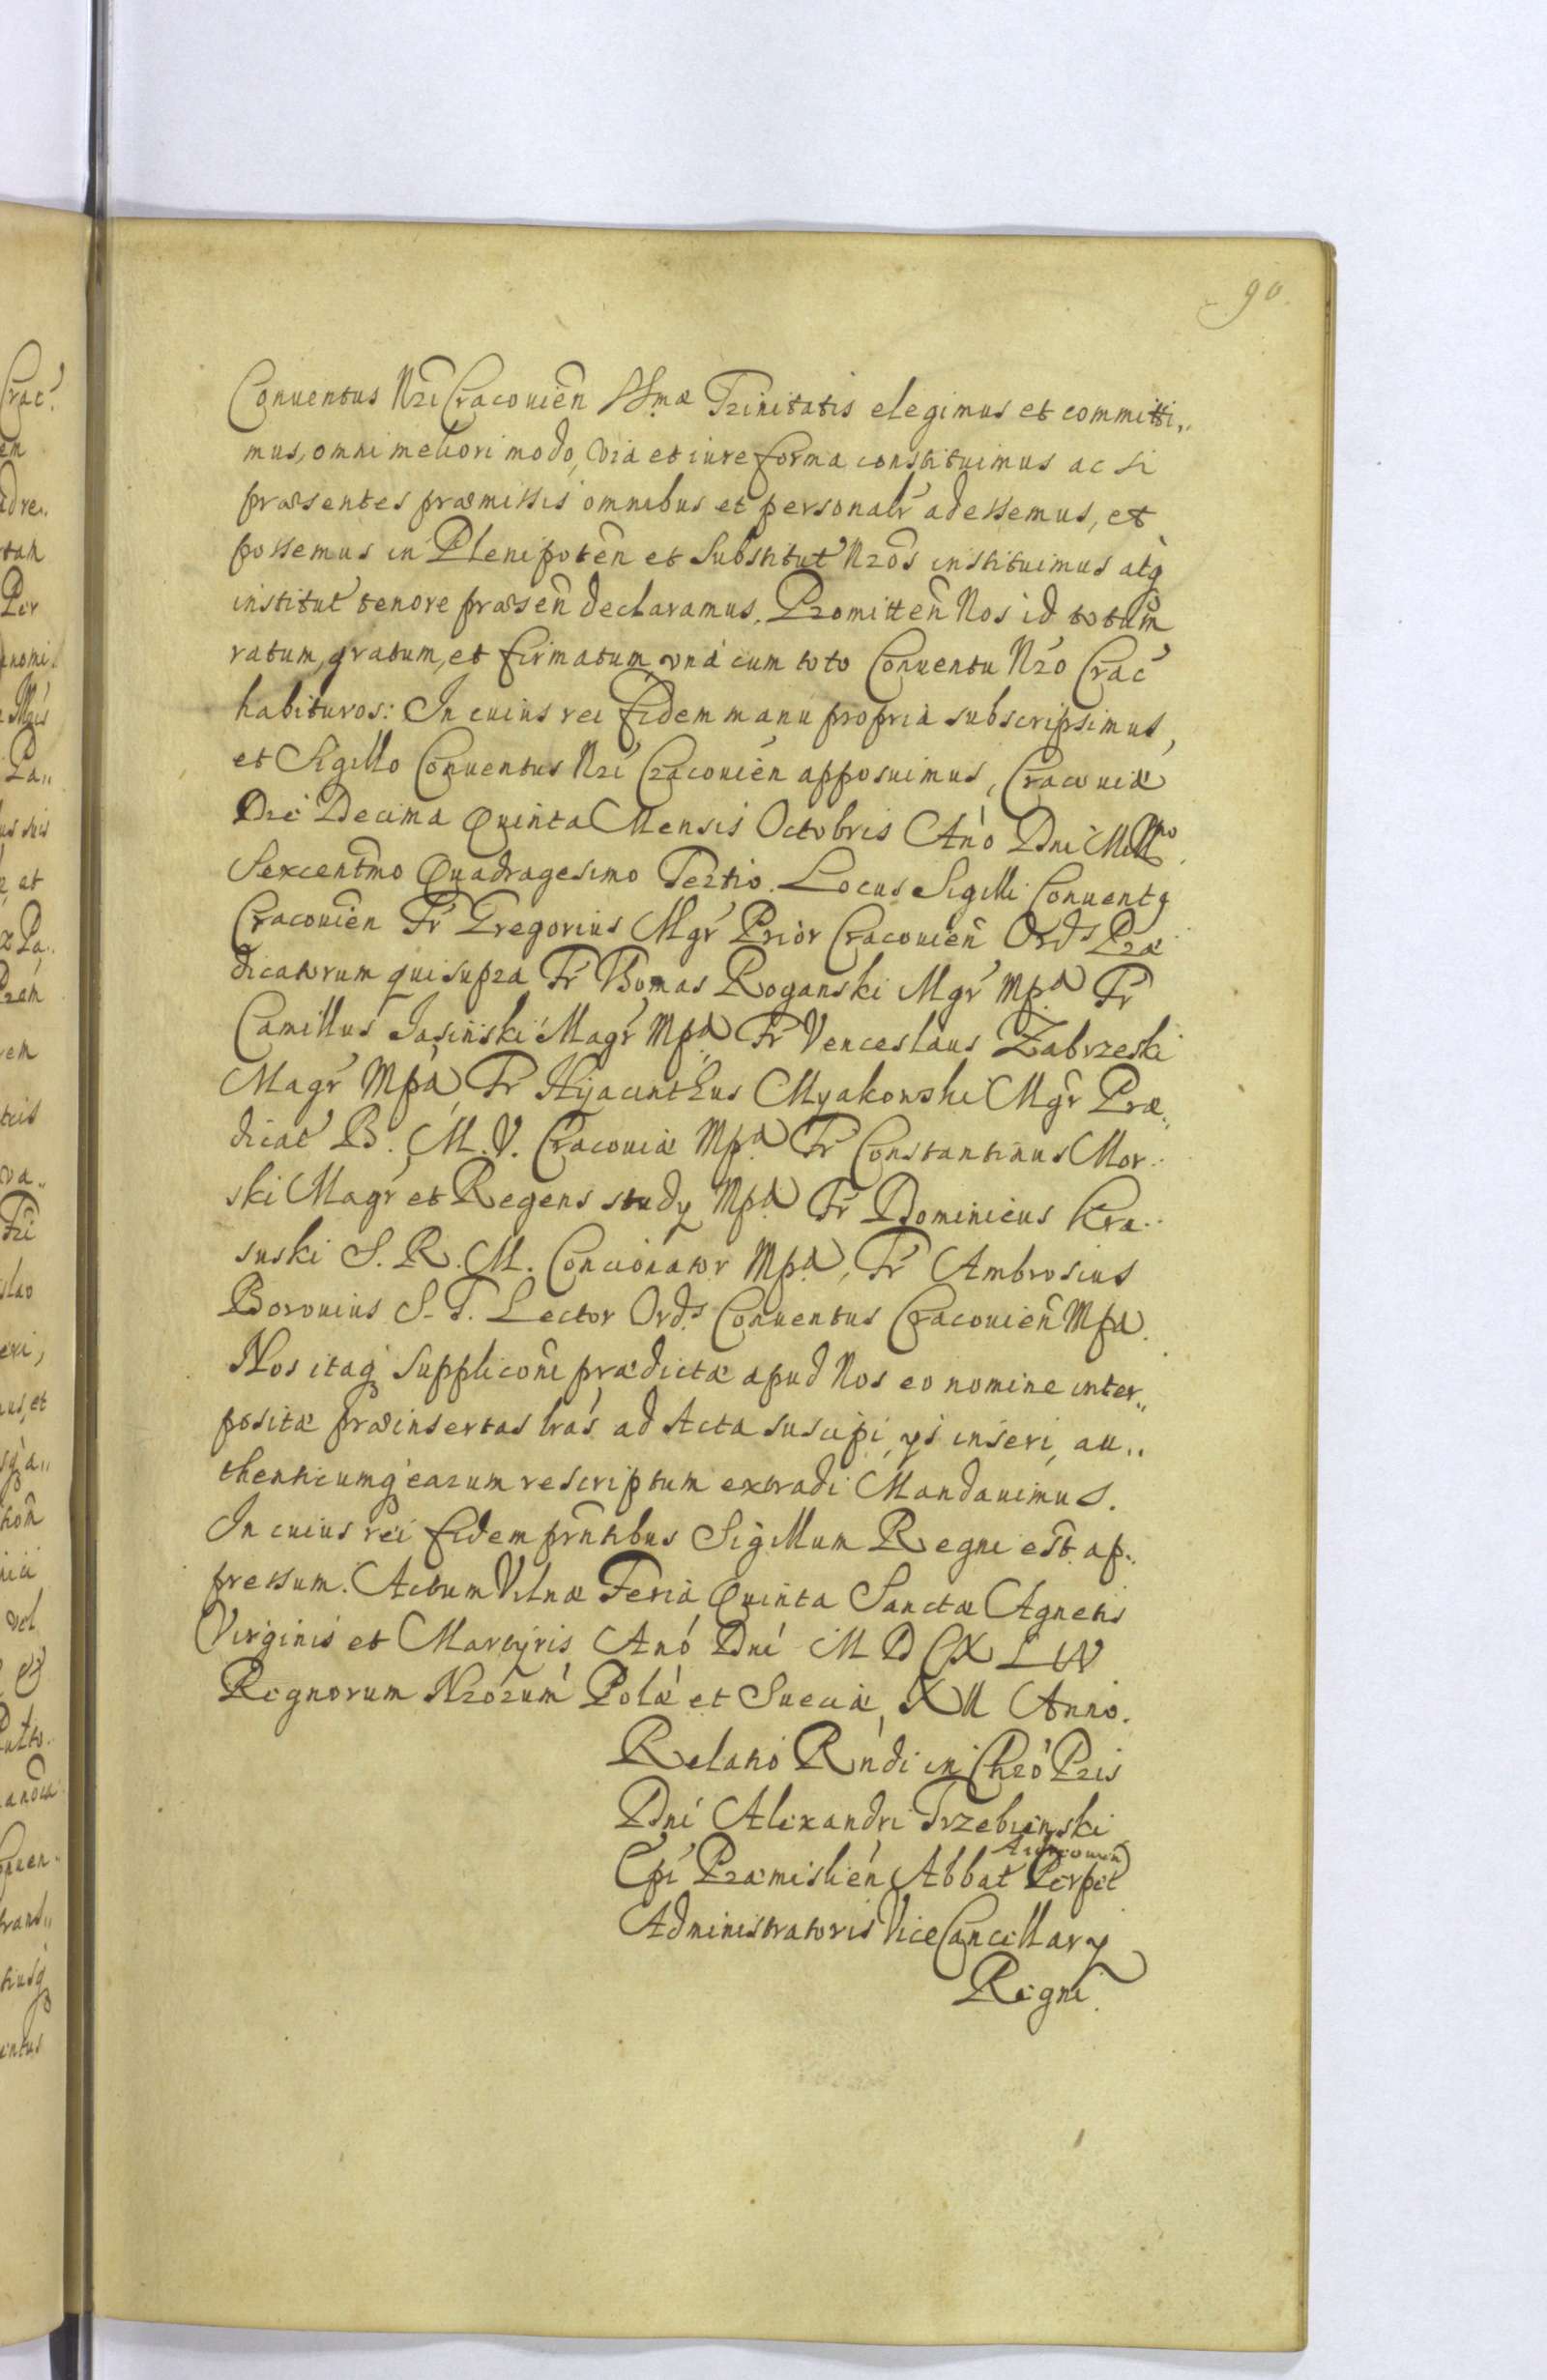 90.
Conuentus Nri Cracouien SSmæ Trinitatis elegimus et committi„
mus, omni meliori modo, via et iure forma constituimus ac si
præsentes præmissis omnibus et personalr adessemus, et
possemus in Plenipoten et Substitut Nros instituimus atq
institut tenore præsen declaramus. Promitten Nos id totum
ratum, gratum, et firmatum vna cum toto Conuentu Nro Crac
habituros: In cuius rei fidem manu propria subscripsimus,
et Sigillo Conuentus Nri Cracouien apposuimus, Cracouiæ
Die Decima Quinta Mensis Octobris Ano Dni Millmo
Sexcentmo Quadragesimo Tertio. Locus Sigilli Conuentq
Cracouien Fr Gregorius Mgr Prior Cracouien Ords Præ
dicatorum qui supra Fr Thomas Roganski Mgr Mpa Fr
Camillus Jasinski Magr Mpa Fr Venceslaus Zabrzeski
Magr Mpa Fr Hijacinthus Myakonshi Mgr Præ„
dicat B. M. V. Cracouiæ Mpa Fr Constantinus Mor„
ski Magr et Regens study Mpa Fr Dominicus Kra„
suski S. R. M. Concionator Mpa, Fr Ambrosius
Borouius S. T. Lector Ords Conuentus Cracouien Mpa.
Nos itaq Suppliconi prædictæ apud Nos eo nomine inter„
positæ præinsertas lras ad Acta suscipi, ys inseri, au„
thenticumq earum rescriptum extradi Mandauimus.
In cuius rei fidem prntibus Sigillum Regni est ap„
pressum. Actum Vilnæ Feria Quinta Sanctæ Agnetis
Virginis et Martyris Ano Dni M D CXLIV
Regnorum Nrorum Polæ et Sueciæ, XII Anno.
Relatio Rndi in Chro Pris
Dni Alexandri Trzebinski
Epi Præmislien Abbat Perpet
Administratoris ViceCancellary
Regni